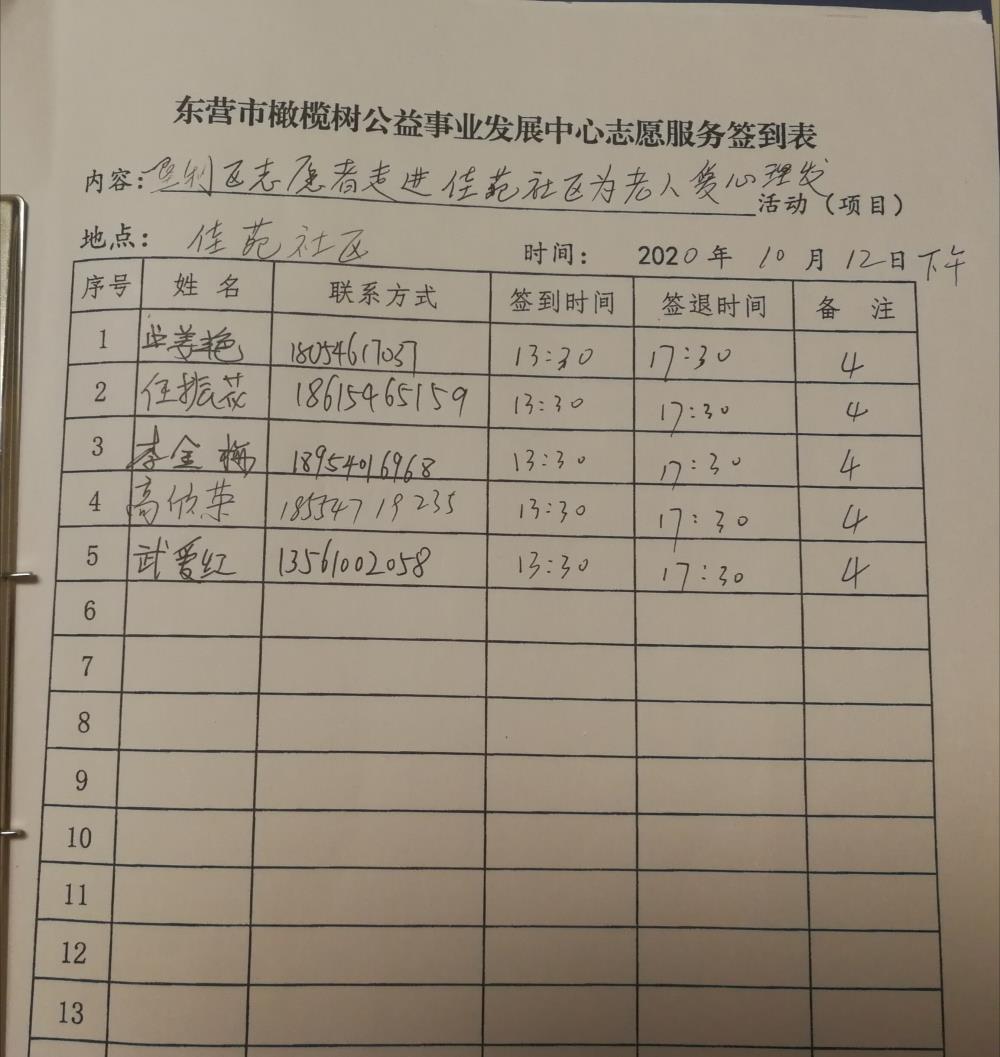 东营市橄榄树公益事业发展中心志愿服务签到表
内容：垦利区志愿者走进佳苑社区为老人爱心理发 活动（项目）
地点： 佳苑社区 时间： 2020年10月12日下午
序号 姓名 联系方式 签到时间 签退时间 备注
1 18054617037 13:30 17:30 4
2 任振花 18615465159 13:30 17:30 4
3 李金梅 18954016968 13:30 17:30 4
4 高欣荣 18554719235 13:30 17:30 4
5 武爱红 13561002058 13:30 17:30 4
6
7
8
9
10
11
12
13